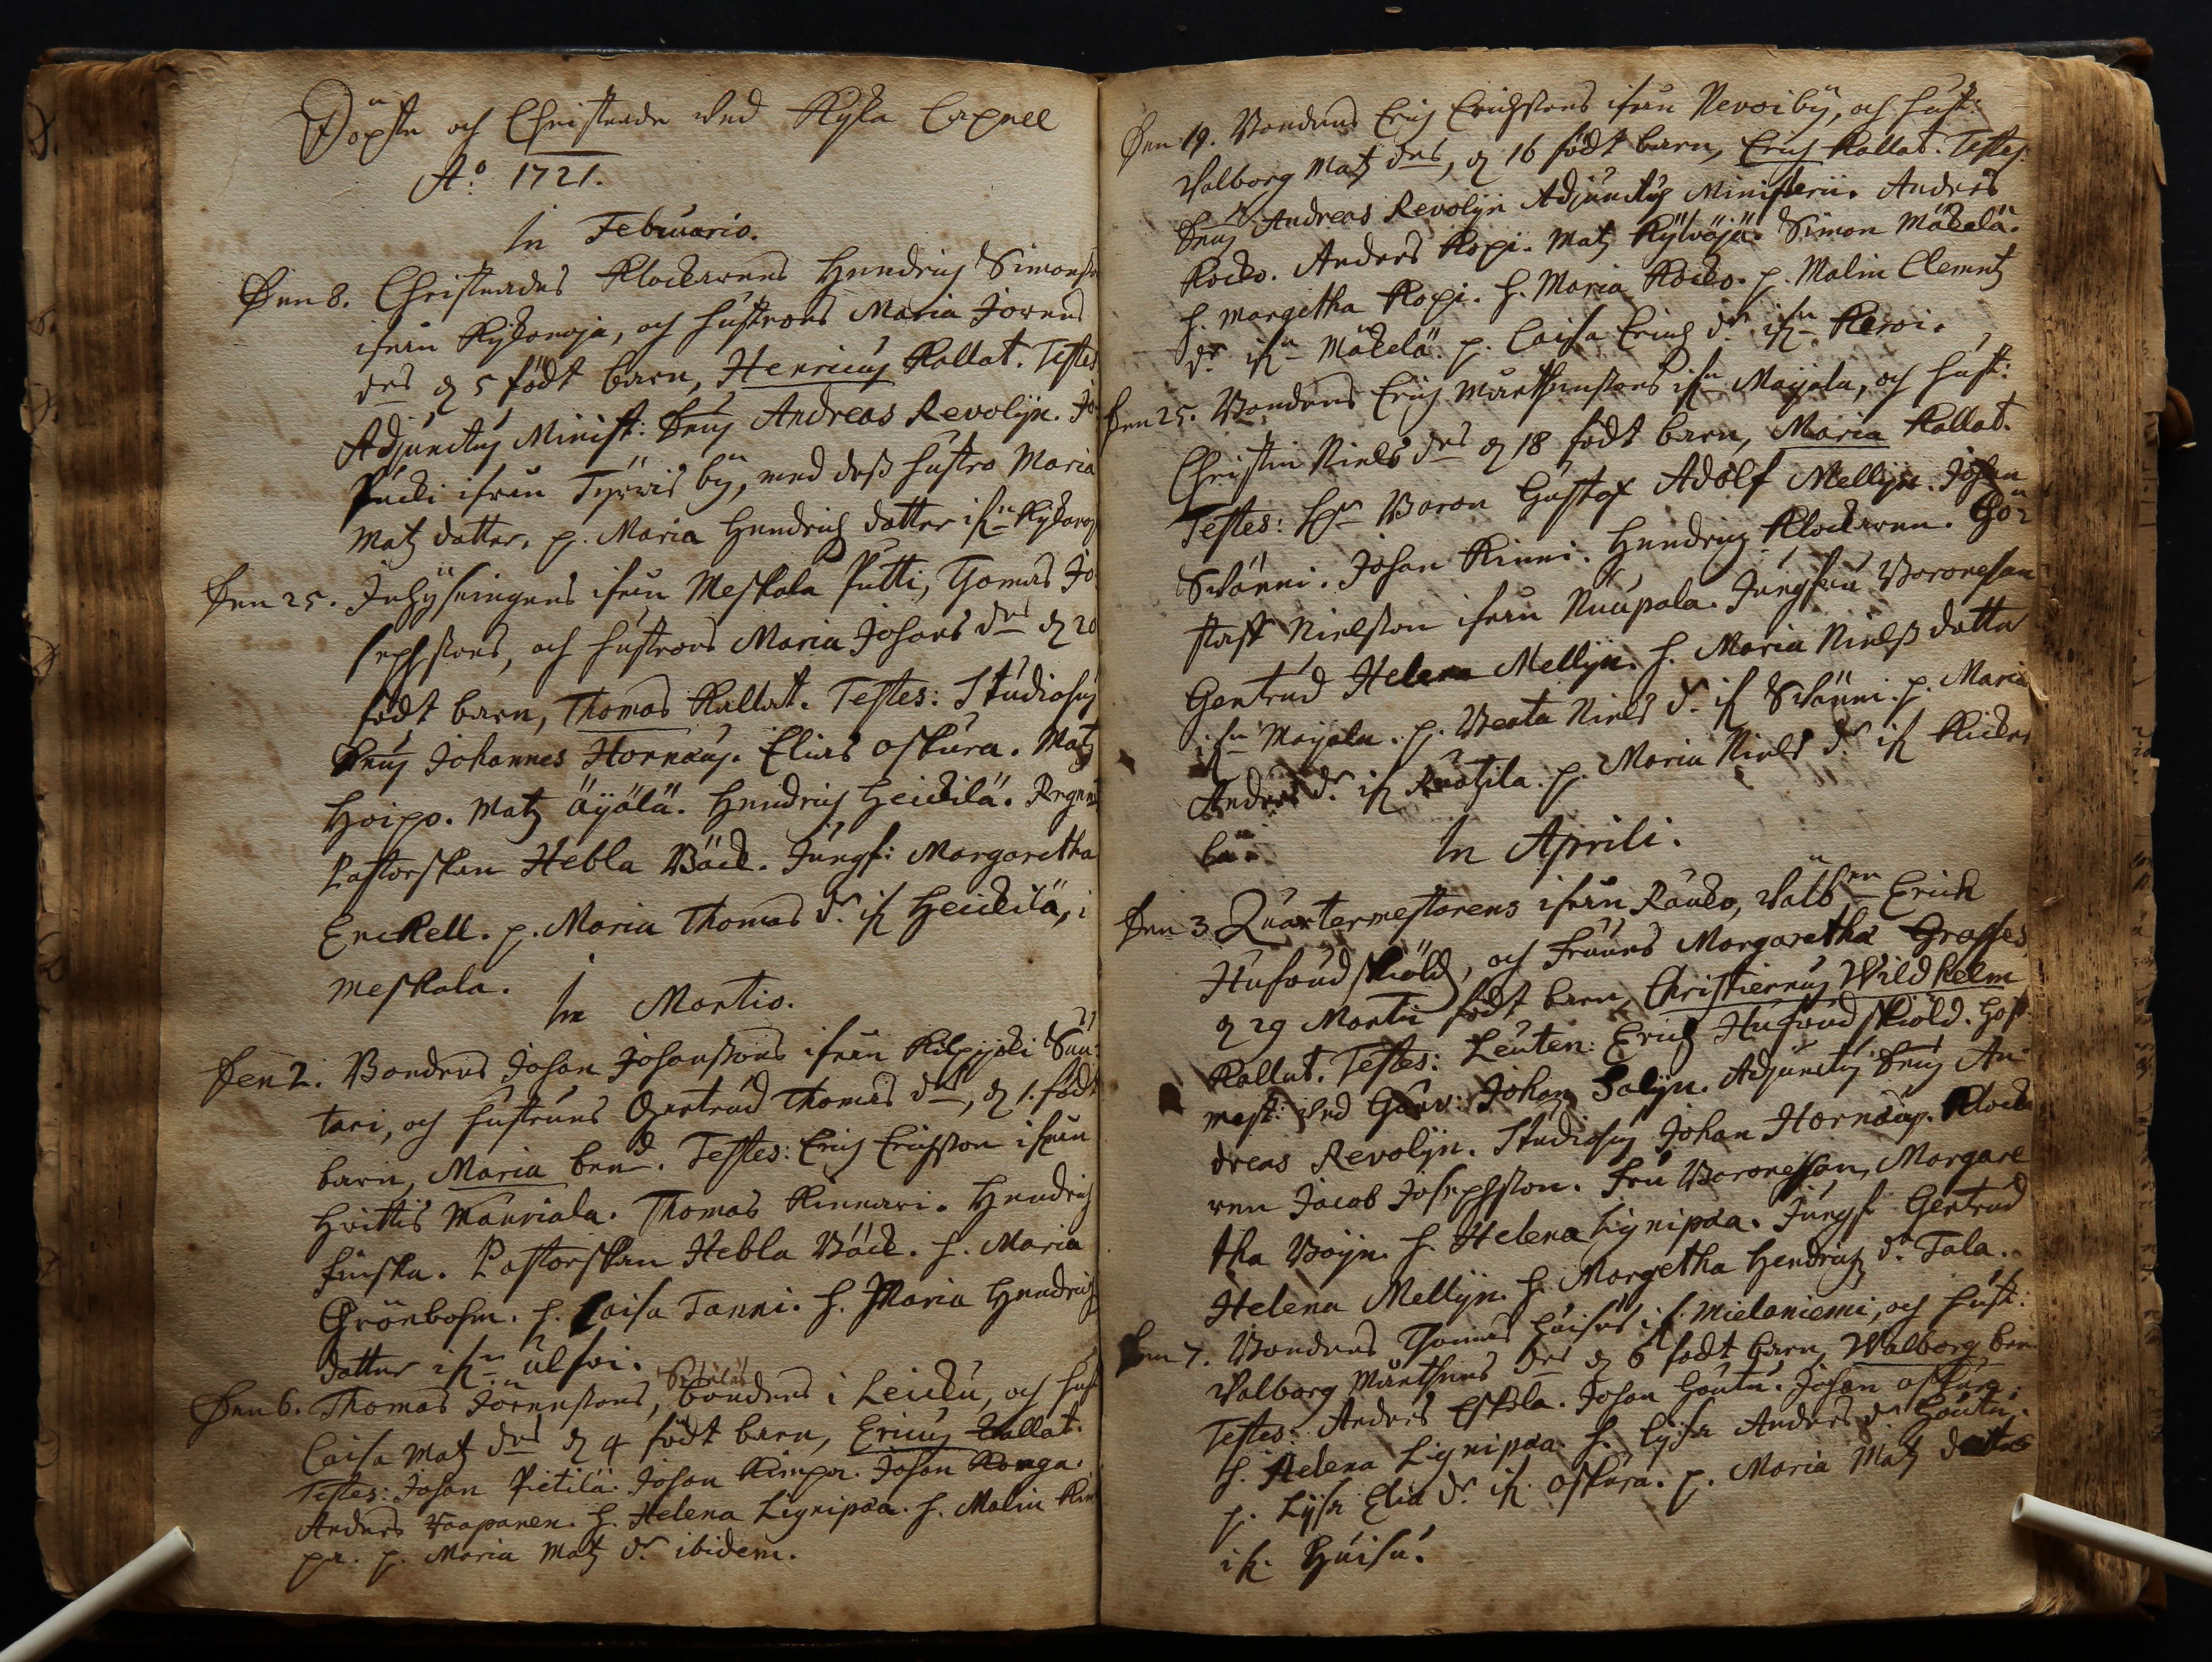 Döpte och Christnade wed Kyla Capell
A:o 1721.
In Februario.
Den 8. Christnades Klockarens Hendrich Simons
ifrån Kykonoja, och hustrons Maria Jörens
drs d 5 födt barn, Henricus Kallat. Testes
Adjunctus Minist: Dnus Andreas Revolijn. Jo
Pucki ifrån Tyrwis bÿ, med dess hustro Maria
Matz dotter. p. Maria Hendrichs dotter ifn Kykono
Den 25. Inhysingens ifrån Meskala Putti, Thomas Jo
sephsons, och hustrons Maria Johans drs d 20
födt barn, Thomas Kallat. Testes: Studiosus
Dnus Johannes Hornæus. Elias oskura. Matz
Hoipo. Matz Äyälä. Hendrich Heickilä. Regem
Pastorskan Hebla Bäck. Jungf: Margaretha
Enckell. p. Maria Thomas dr if Heickilä, i
meskala.
In Martio.
Den 2. Bondens Johan Johanssons ifrån Kilpijoki Sun
tari, och hustruns Gertrud Thomas drs, d 1. födt
barn, Maria bend. Testes: Erich Erichsson ifrån
Hvittis Mauriala. Thomas Kinnari. Hendrich
finska. Pastorskan Hebla Bäck. h. Maria
Grönbohm. h. Caisa Tanni. h. Maria Hendrichs
dotter ifn ülsoi.
Den 6. Thomas Jörensons, bondens i Leicku, och hust
Caisa Matz drs d 4 födt barn, Ericus Kallat.
Testes: Johan Pietilä. Johan Kimpa. Johan Konga.
Anders Vaapanen. h. Helena Lignipæa. h. Malin Kim
pa. p. Maria Matz dr ibidem.
Den 19. Bondens Erich Erichssons ifrån Nevoi bÿ, och hust:
Valborg Matz drs, d 16 födt barn, Erich Kallat. Testes
Dnus Andreas Revolijn Adjunctus Ministerii. Anders
Kocko. Anders Kopi. Matz Kylvöjä. Simon Mäkelä.
h. Margetha Kopi. h. Maria Kocko. p. Malin Clemetz
dr ifn Mäkelä. p. Caisa Erichs dr ifn Kervoi.
Den 25. Bondens Erich Mårthenssons ifn Maijala, och hust:
Christin Niels drs d 18 födt barn, Maria Kallat.
Testes: Hr Baron Gustaf Adolf Mellijn. Johan
Svänni. Johan Kinni. Hendrich Klockaren. Gö
staff Nielsson ifrån Nuupala. Jungfru Baronessan
Gertrud Helena Mellijn. h. Maria Nielss dotter
ifn Maijala. p. Beata Niels d. if Svänni. p. Maria
Anders dr if Kuotzila. p. Maria Niels dr if Kickes
bä.
In Aprili.
Den 3 Quartermestarens ifrån Rauko, Välb:en Erich
Hufvudskiöld, och fruans Margaretha Grasses
d 29 Martii födt barn, Christiernus Wildhelm
Kallat. Testes: Leuten: Erich Hufvudskiöld. Hof
mest: wed Garv: Johan Salijn. Adjunctus Dnus An
dreas Revolijn. Studiosus Johan Hornæus. Klocka
ren Jacob Josephsson. Fru Baronessan, Margare
tha Boijn. h. Helena Lignipæa. Jungf Gertrud
Helena Mellijn. h. Margetha Hendrichs dr Tala.
Den 7. Bondens Thomas Huisus if. Mielaniemi, och hust:
Valborg Mårthens drs d 6 födt barn, Walborg ben
Testes: Anders Eskola. Johan Houtu. Johan oskura.
h. Helena Lignipæa. h. Lysa Anders dr Houtu.
p. Lysa Elia dr if oskura. p. Maria Matz dotter
if. Huisu.